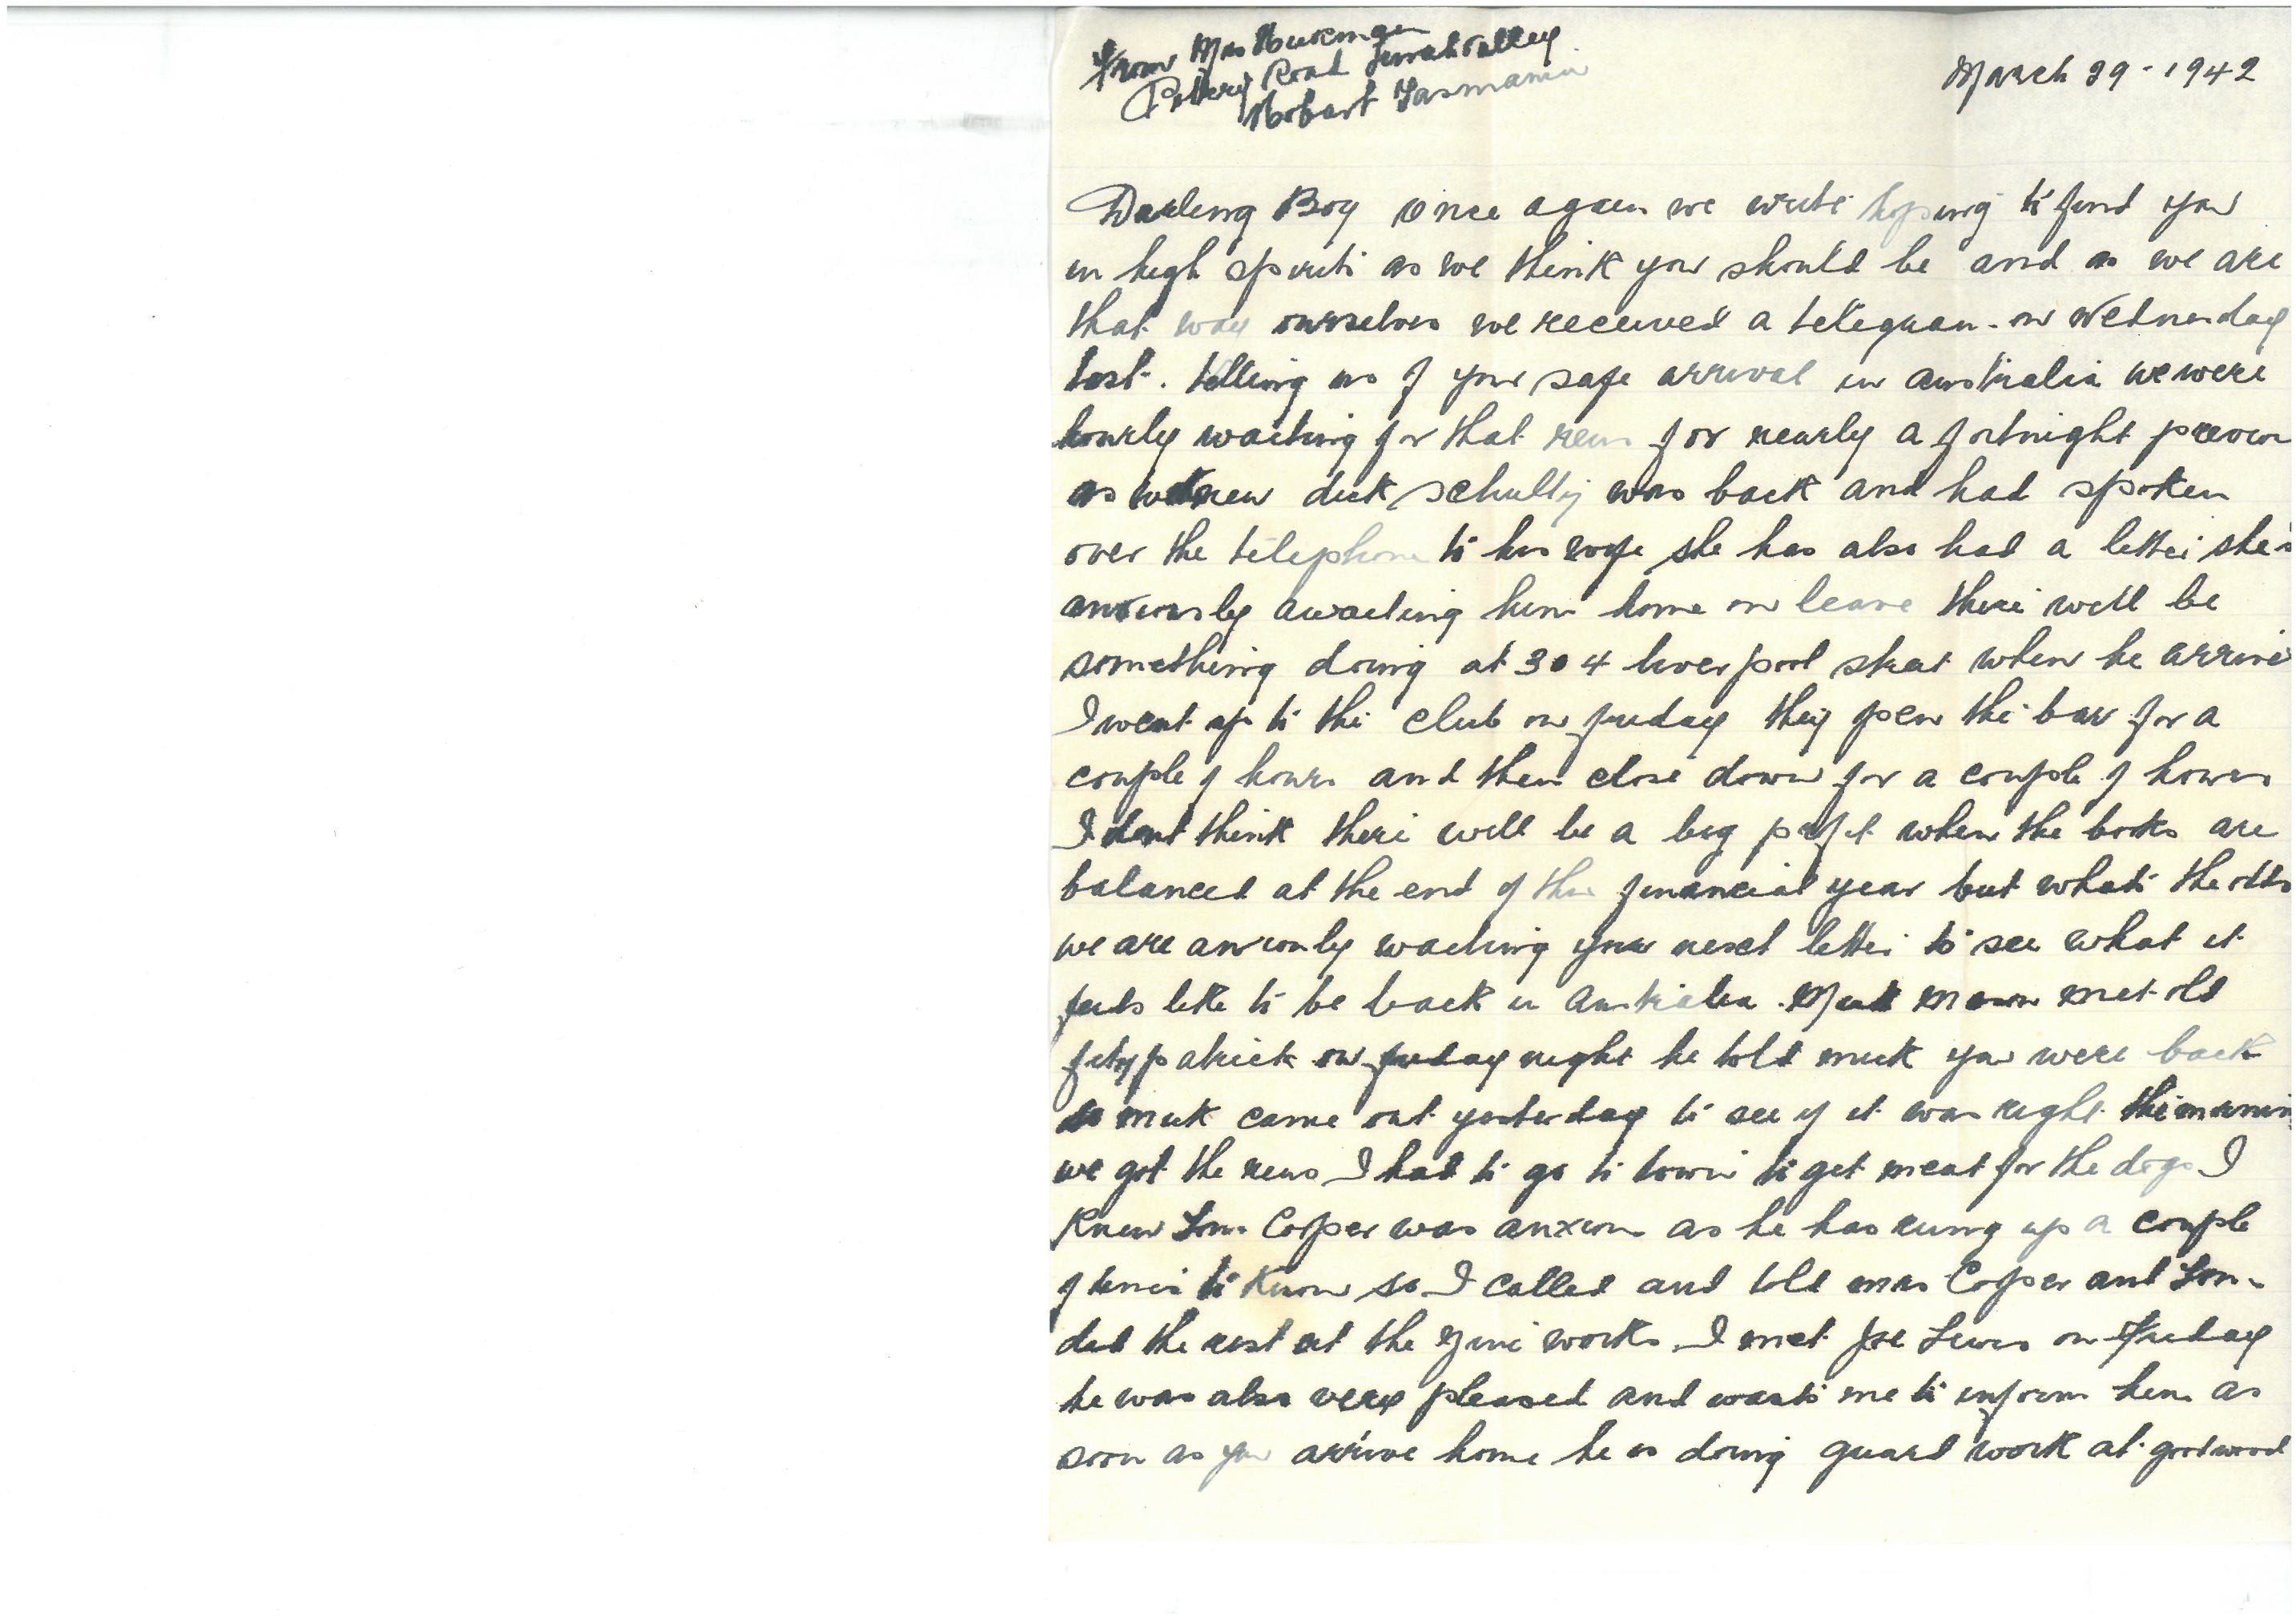 From Mrs
Pottery Road Lenah Valley
Hobart Tasmania
March 29-1942
Darling Boy once again we write hoping to find you
in high spirits as we think you should be and as we are
that way ourselves we received a telegram on Wednesday
last. telling us of your safe arrival in australia we were
hourly waiting for that news for nearly a fortnight
as we knew dick was back and had spoken
over the telephone to his wife she has also had a letter she
anxiously awaiting him home on leave there will be
something doing at 304 liverpool street when he arrive
I went up to the club on friday they open the bar for a
couple of hours and then close down for a couple of hours
I dont think there will be a big profit when the books are
balanced at the end of the financial year but whats the odds
we are anxiously waiting your next letter to see what it
feels like to be back in australia. met old
fitzpatrick on friday night he told mick you were back
so mick came out yesterday to see if it was right the
we got the news I had to go to town to get meat for the dogs I
knew Cooper was anxious as he has rung up a couple
of times to know so I called and told mrs Cooper and
did the rest at the zinc works I met Joe Lewis on Friday
he was also very pleased and wants me to inform him as
soon as you arrive home he is doing guard work at goodwood